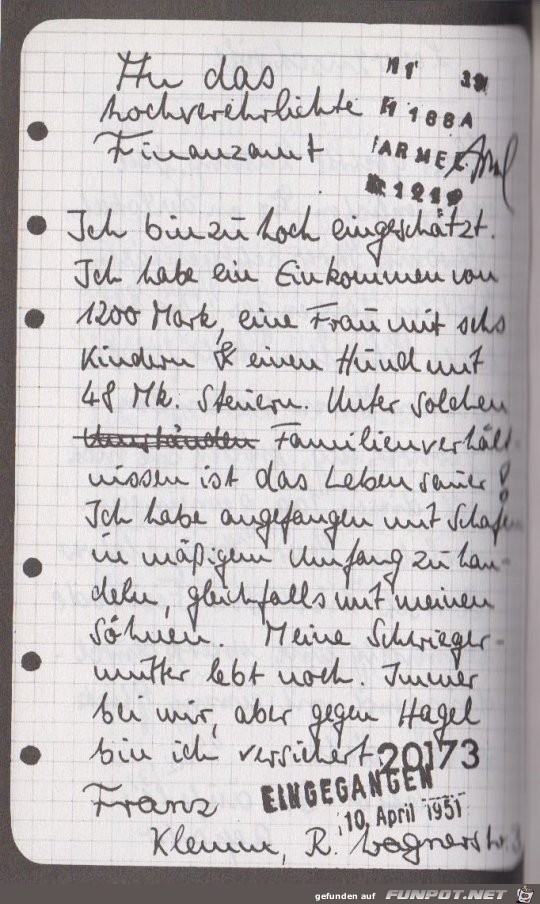 An das
hochverehrlichte
Finanzamt
Ich bin zu hoch eingeschätzt.
Ich habe ein Einkommen von
1200 Mark, eine Frau mit sechs
Kindern & einen Hund mit
48 Mk. Steuern. Unter solchen
Umständen Familienverhält-
nissen ist das Leben sauer!
Ich habe angefangen mit Schafen
in mäßigem Umfang zu han-
deln, gleichfalls mit meinen
Söhnen. Meine Schwieger-
mutter lebt noch. Immer
bei mir, aber gegen Hagel
bin ich versichert
20173
Franz
EINGEGANGEN
10. April 1951
Klemm, R. Wagnerstr.
gefunden auf FUNPOT.NET